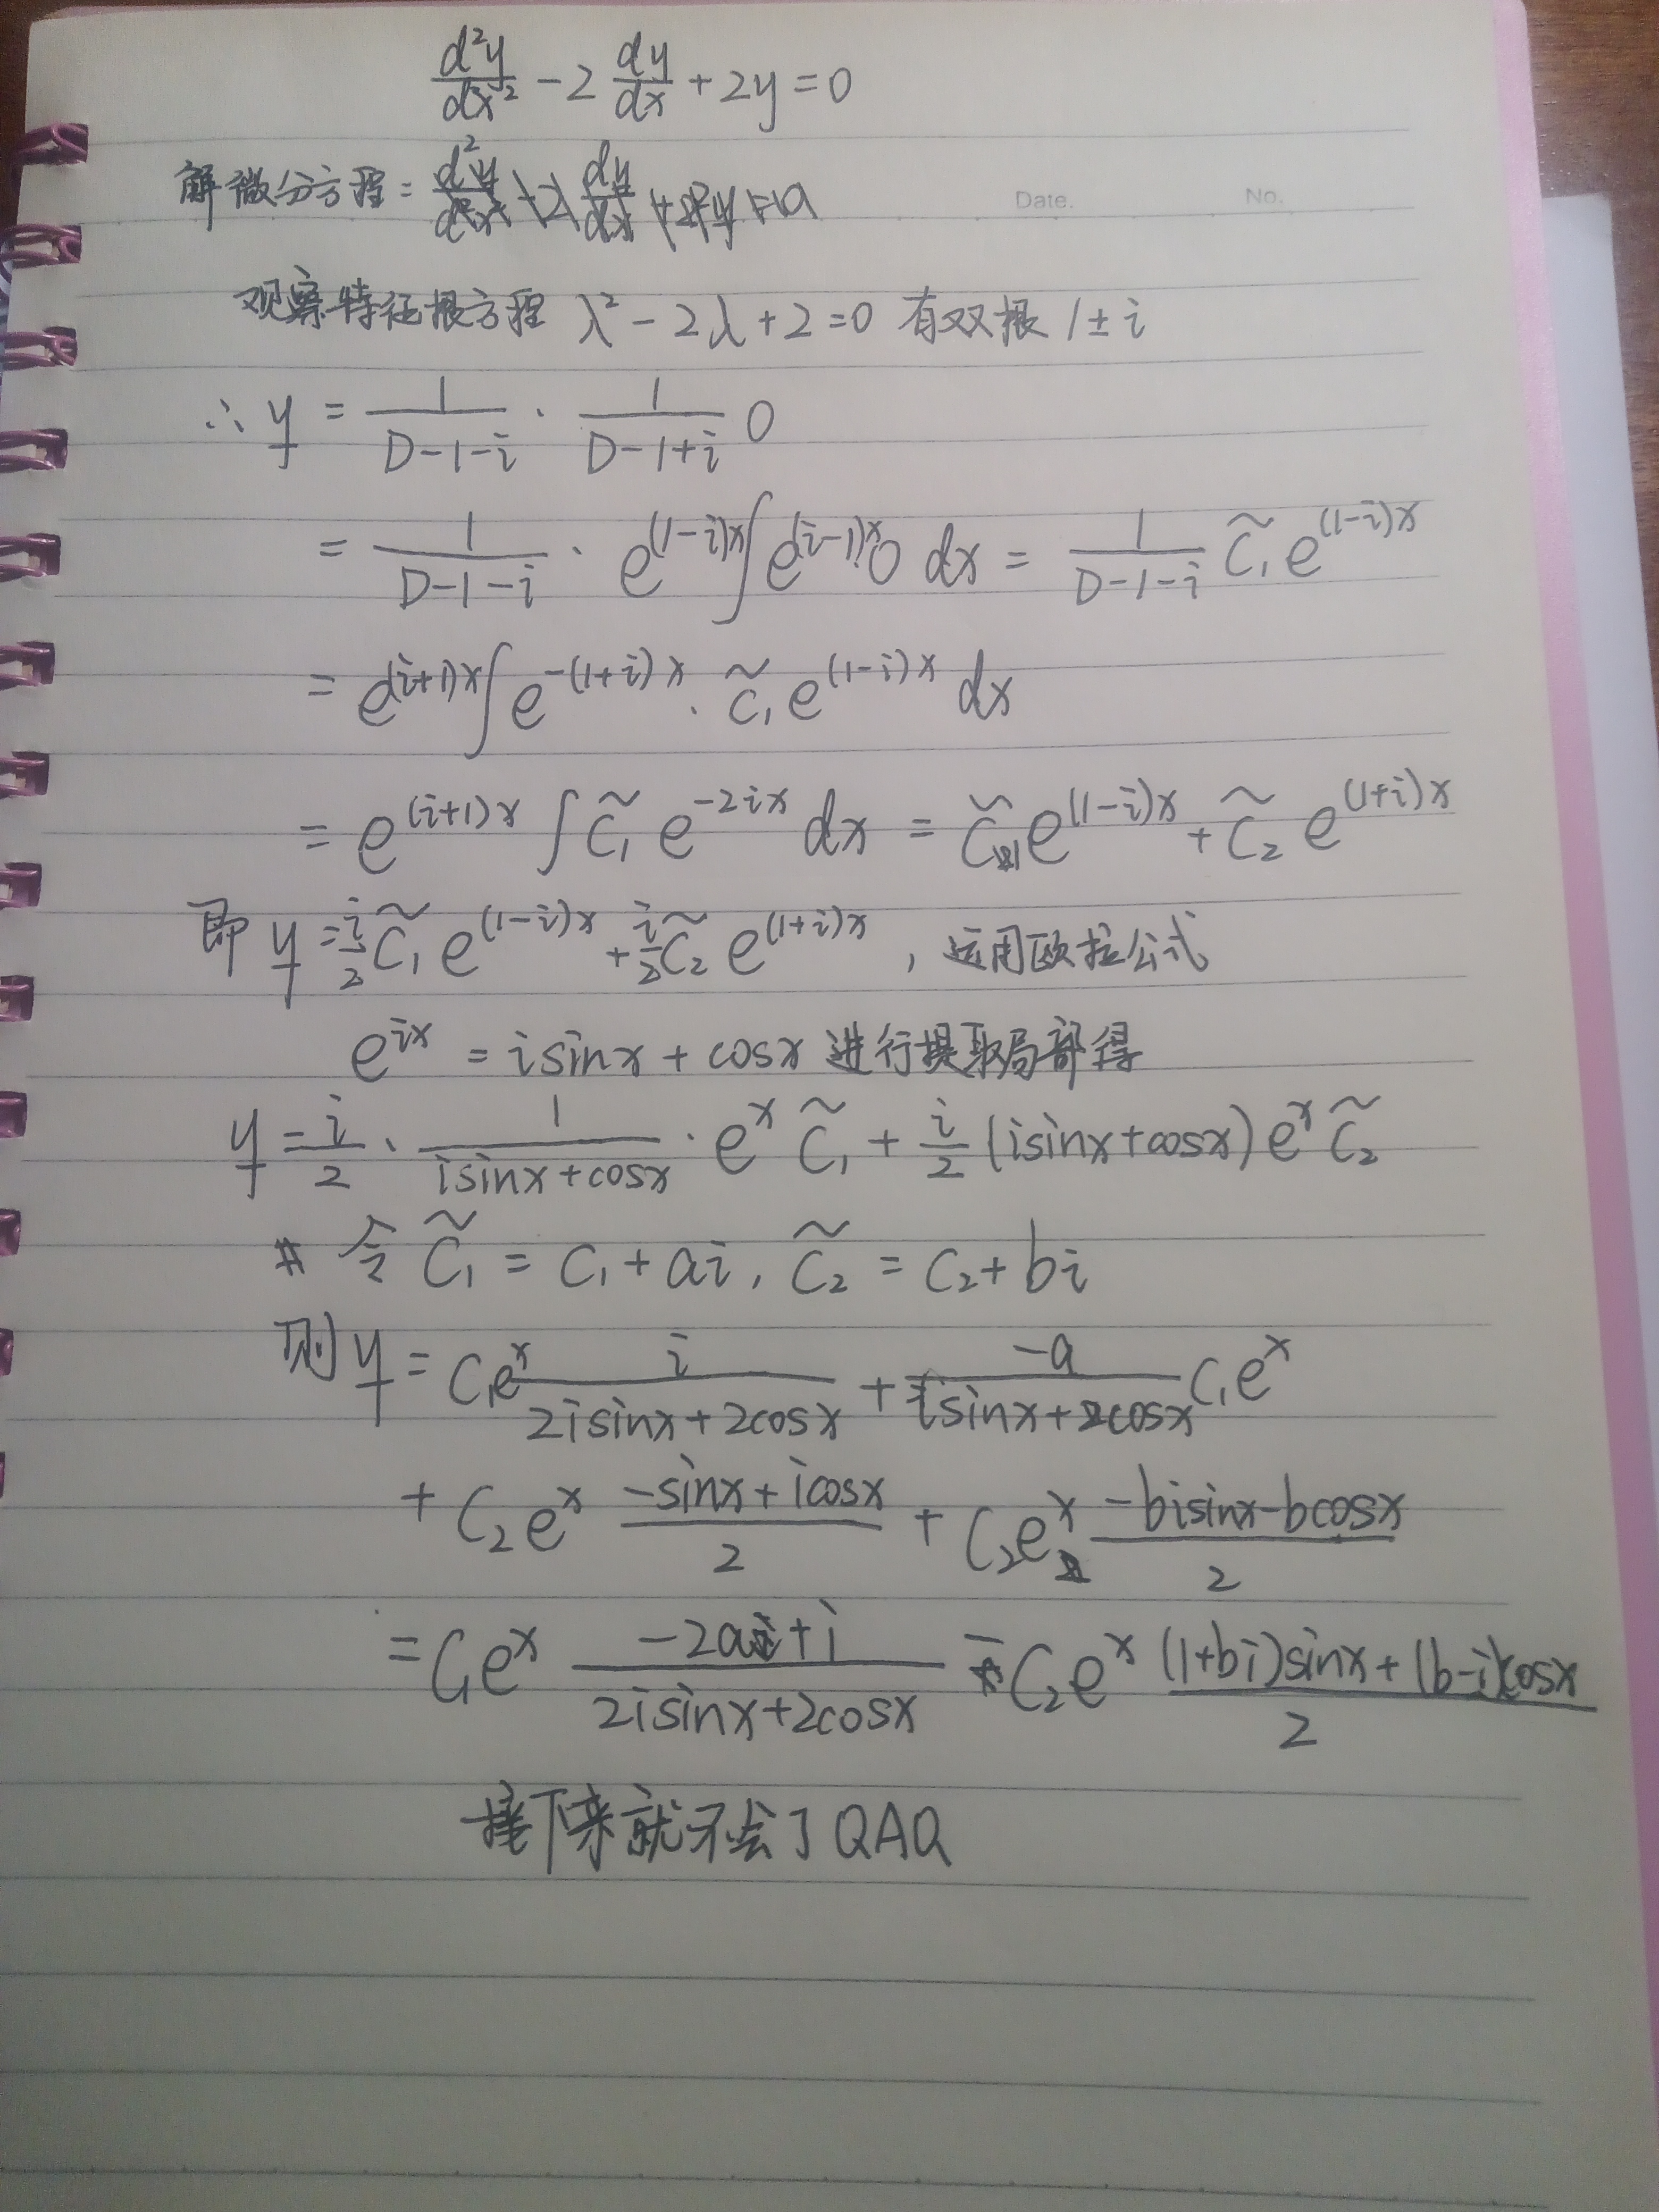 d²y/dx² - 2 dy/dx + 2y = 0
Date. No.
解微分方程:
观察特征根方程 λ² - 2λ + 2 = 0 有双根 1 ± i
∴ y = 1/(D-1-i) · 1/(D-1+i) 0
= 1/(D-1-i) · e^{(1-i)x} ∫ e^{(i-1)x} 0 dx = 1/(D-1-i) C̃₁ e^{(1-i)x}
= e^{(i+1)x} ∫ e^{-(1+i)x} · C̃₁ e^{(1-i)x} dx
= e^{(i+1)x} ∫ C̃₁ e^{-2ix} dx = C̃₁ e^{(1-i)x} + C̃₂ e^{(1+i)x}
即 y = i/2 C̃₁ e^{(1-i)x} + i/2 C̃₂ e^{(1+i)x} , 运用欧拉公式
e^{ix} = i sinx + cosx 进行提取局部得
y = i/2 · 1/(i sinx + cosx) · e^x C̃₁ + i/2 (i sinx + cosx) e^x C̃₂
令 C̃₁ = C₁ + ai , C̃₂ = C₂ + bi
则 y = C₁e^x i/(2i sinx + 2cosx) + -a/(i sinx + cosx) C₁e^x
+ C₂e^x (-sinx + i cosx)/2 + C₂e^x (-bi sinx - b cosx)/2
= C₁e^x (-2a + i)/(2i sinx + 2cosx) - C₂e^x ((1+bi) sinx + (b-i) cosx)/2
接下来就不会了 QAQ